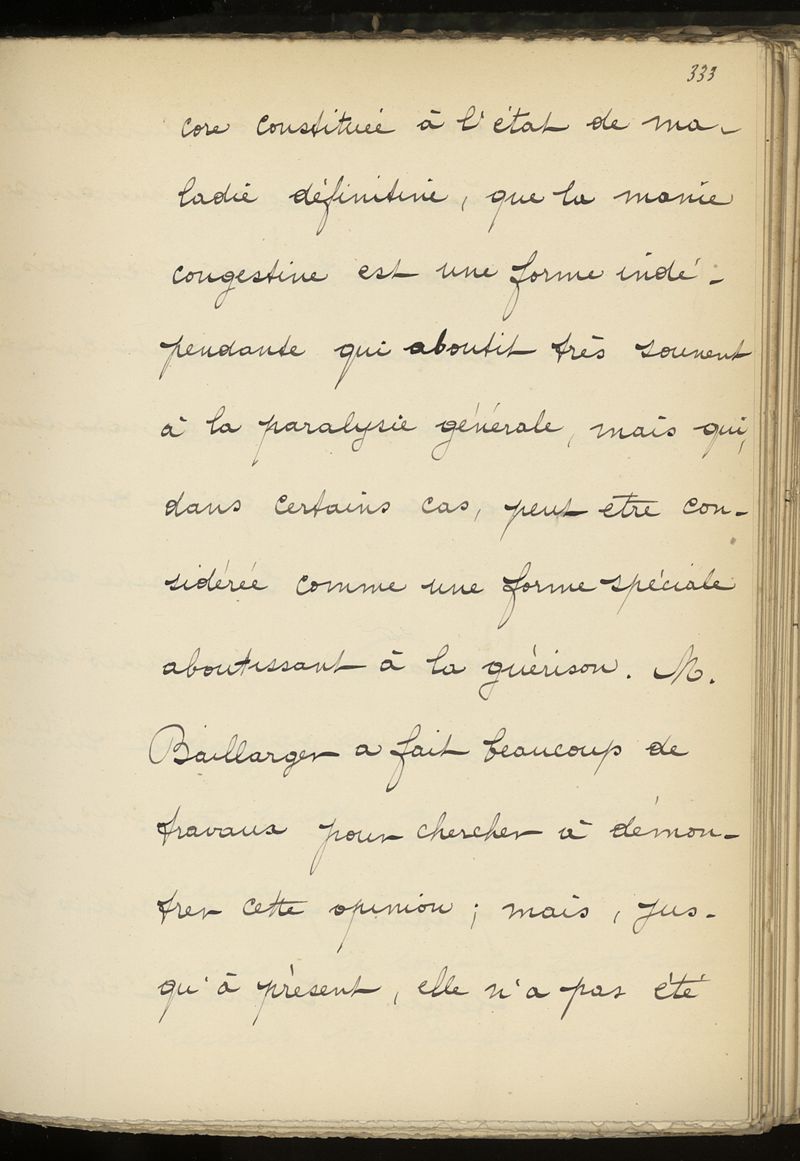 333
core constituée à l'état de ma-
ladie définitive, que la manie
congestive est une forme indé-
pendante qui aboutit très souvent
à la paralysie générale, mais qui,
dans certains cas, peut etre con-
sidérée comme une forme spéciale
aboutissant à la guérison. M.
Baillarger a fait beaucoup de
travaux pour chercher à démon-
trer cette opinion ; mais, jus-
qu'à présent, elle n'a pas été